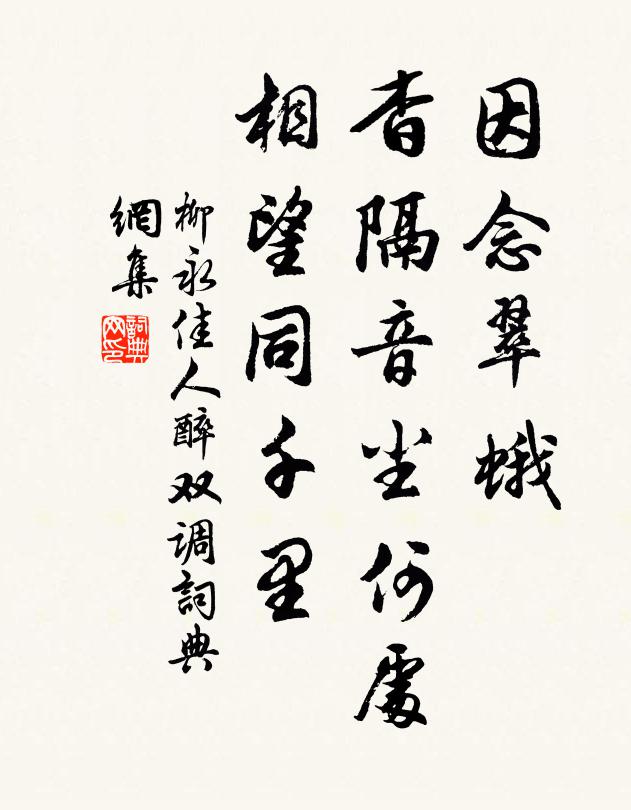 因念翠蛾
杳隔音尘何處
相望同千里
柳永佳人醉双调詞典
網集
詞典网印